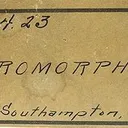 4.23
ROMORPH
Southampton,